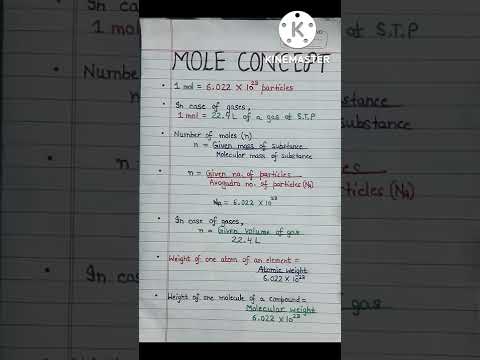 KINEMASTER
MOLE CONCEPT
1 mol = 6.022 X 10²³ particles
In case of gases,
1 mol = 22.4 L of a gas at S.T.P
Number of moles (n)
n = Given mass of substance
Molecular mass of substance
n = Given no. of particles
Avogadro no. of particles (Nₐ)
Nₐ = 6.022 X 10²³
In case of gases,
n = Given volume of gas
22.4 L
Weight of one atom of an element =
Atomic weight
6.022 X 10²³
Weight of one molecule of a compound =
Molecular weight
6.022 X 10²³
1 mol =
at S.T.P
Number
substance
substance
n =
particles
ticles (Nₐ)
In case
gas